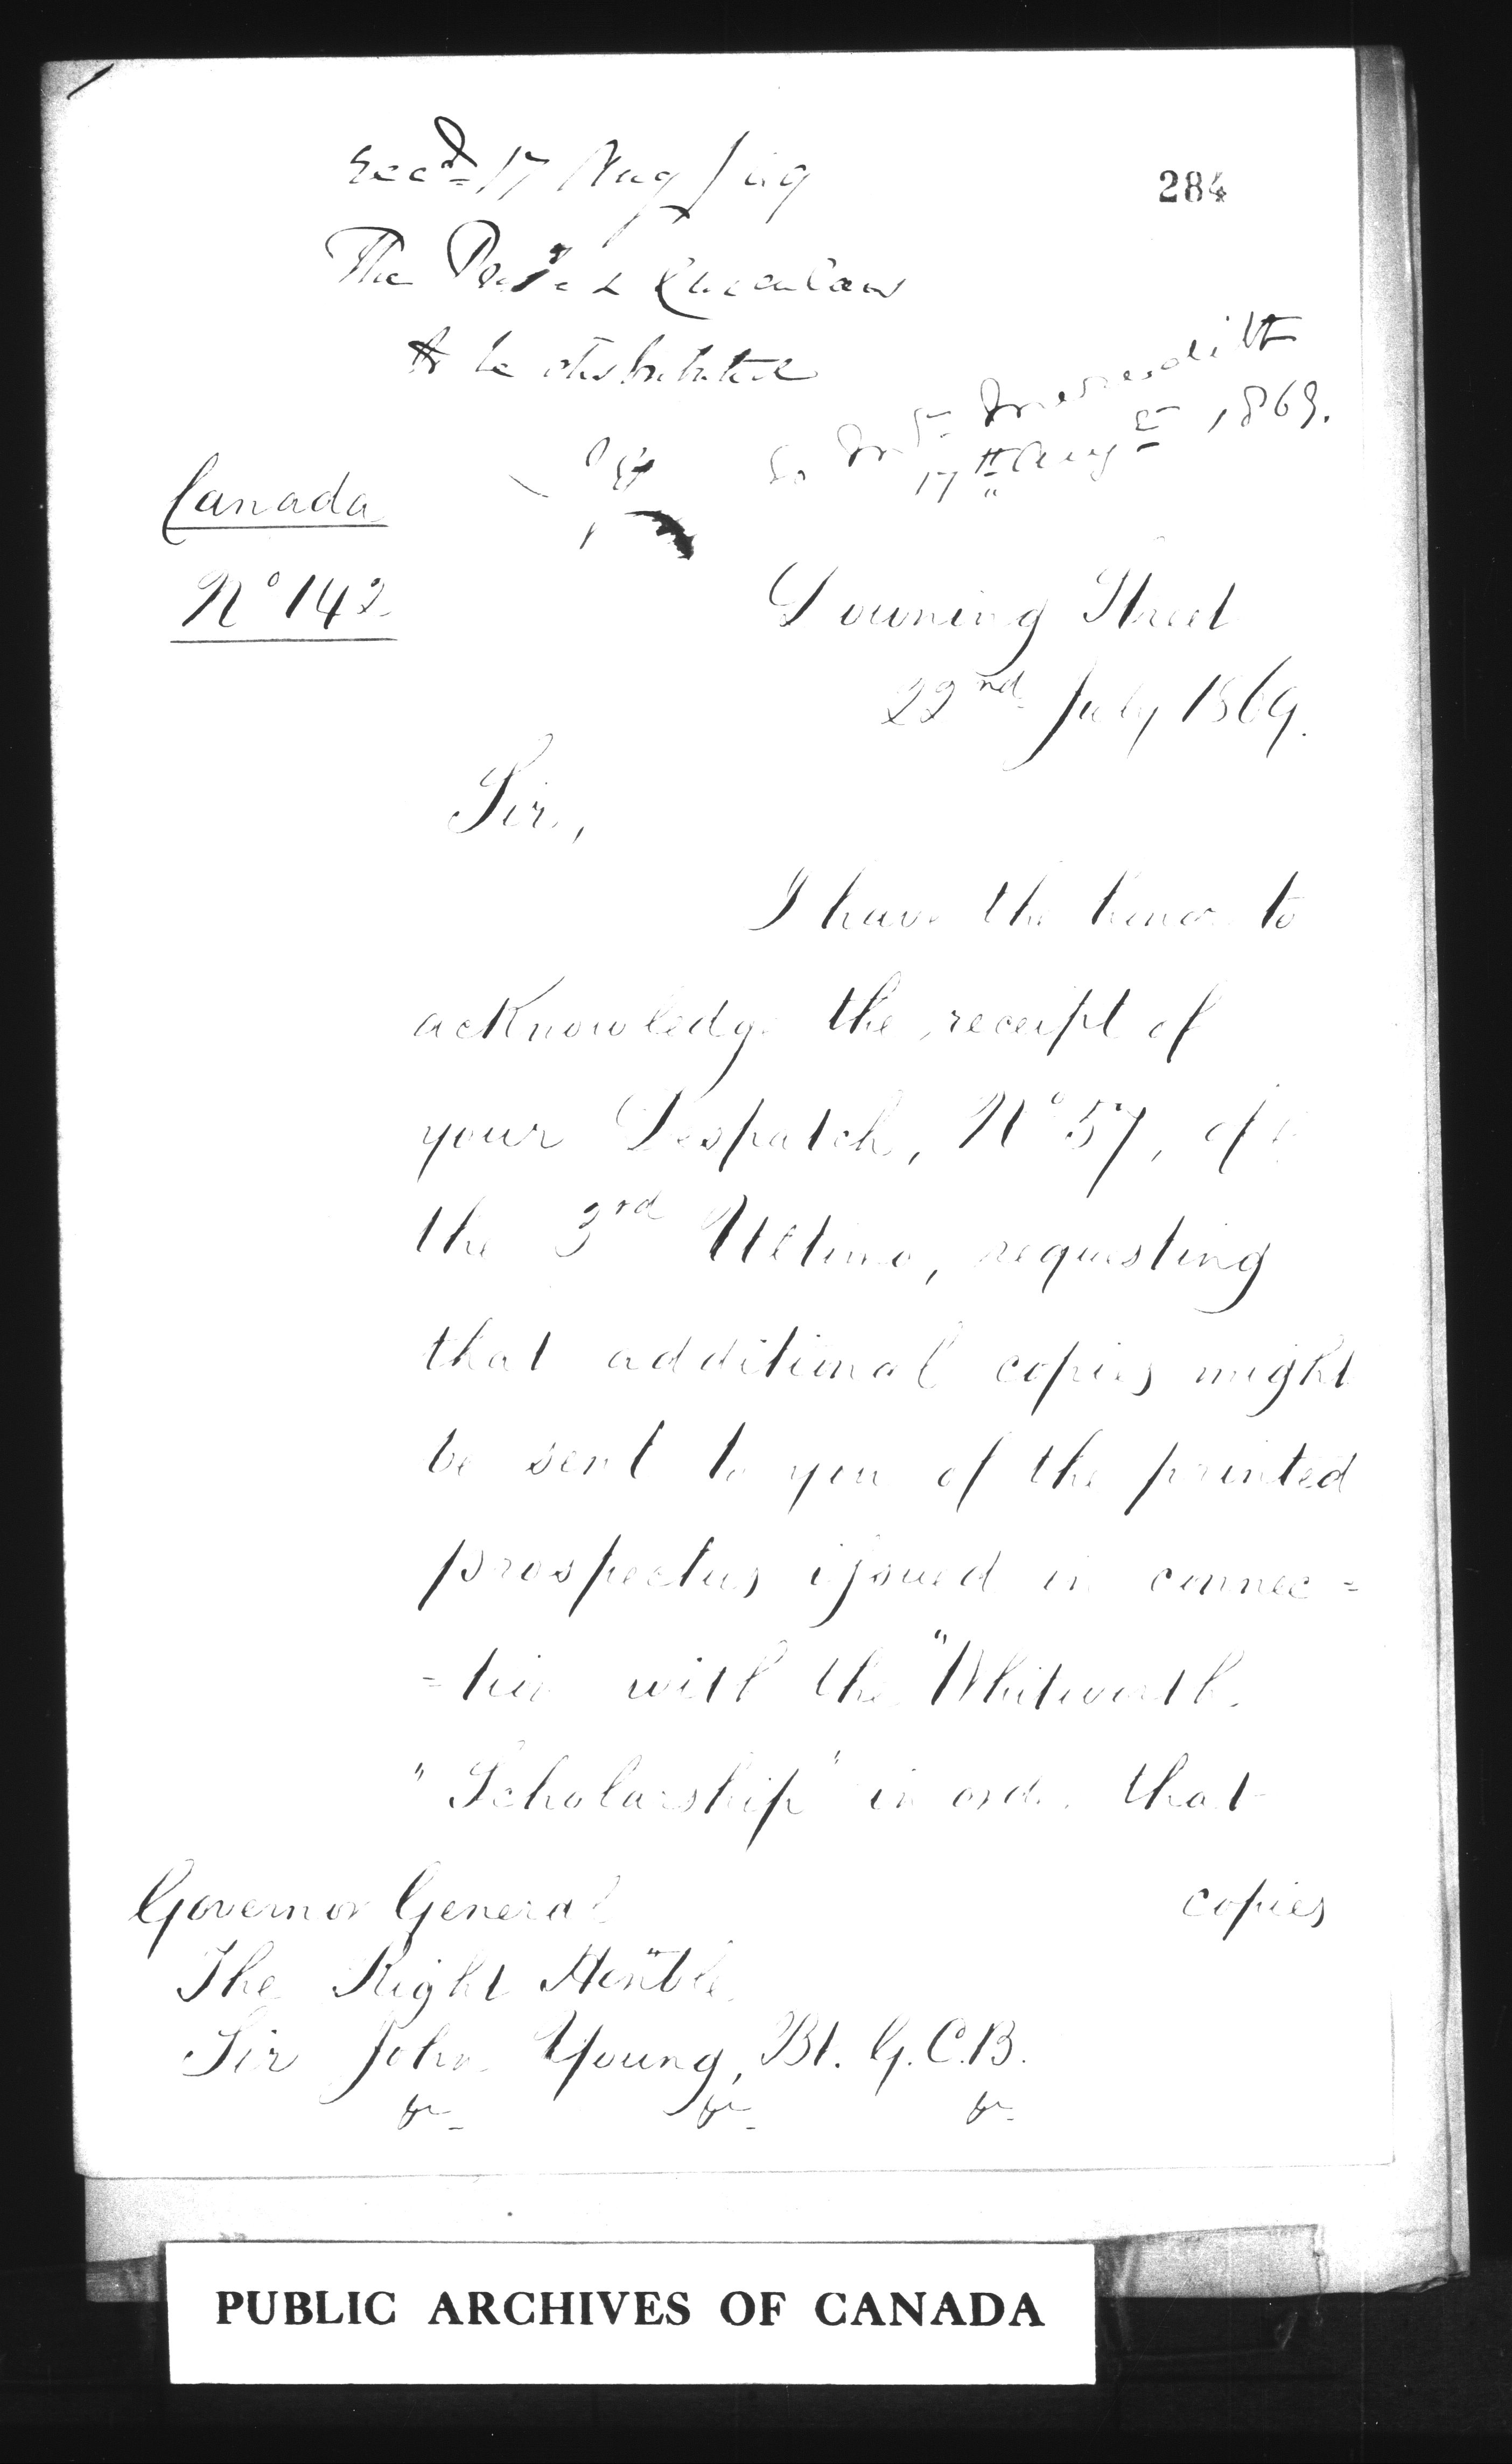 Recd 17 Aug/69
284
The
to be distributed
To Mr Meredith
17th Augt 1869.
Canada
No 142
Downing Street
22nd July 1869.
Sir,
I have the honor to
acknowledge the receipt of
your Despatch, No 57, of
the 3rd Ultimo, requesting
that additional copies might
be sent to you of the printed
prospectus issued in connec=
=tion with the "Whitworth
"Scholarship" in order that
copies
Governor General
The Right Honble
Sir John Young, Bt. G.C.B.
&c &c &c
PUBLIC ARCHIVES OF CANADA